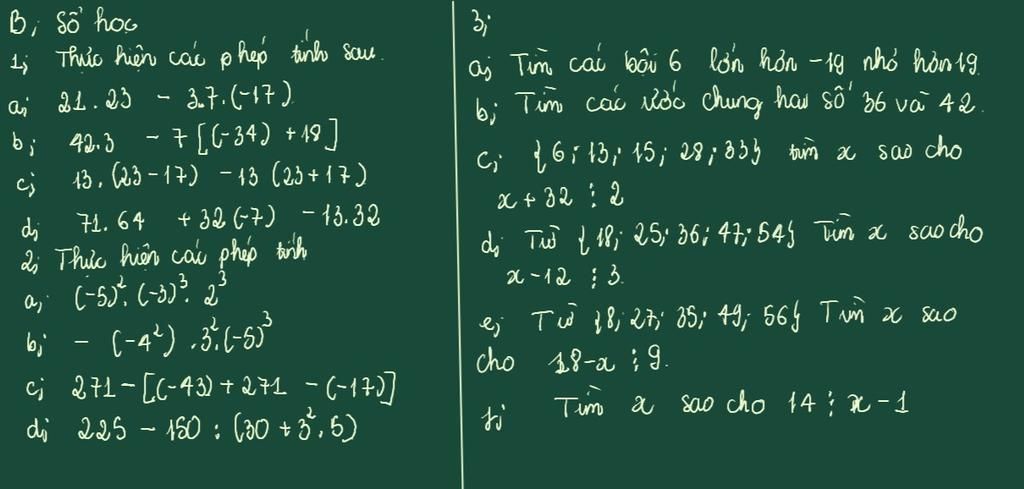 B, Số học
1; Thực hiện các phép tính sau.
a; 21.23 - 3.7.(-17)
b; 42.3 - 7[(-34) + 18]
c; 13.(23-17) - 13(23+17)
d; 71.64 + 32(-7) - 13.32
2; Thực hiện các phép tính
a, (-5)².(-3)³. 2³
b; - (-4²) .3².(-5)³
c; 271 - [(-43) + 271 - (-17)]
d; 225 - 150 : (30 + 3².5)
3;
a; Tìm các bội 6 lớn hơn -19 nhỏ hơn 19.
b; Tìm các ước chung hai số 36 và 42.
c, {6; 13; 15; 28; 33} tìm x sao cho
x + 32 ⋮ 2
d, Từ {18; 25; 36; 47; 54} Tìm x sao cho
x - 12 ⋮ 3.
e; Từ {8; 27; 35; 49; 56} Tìm x sao
cho 18 - x ⋮ 9.
f; Tìm x sao cho 14 ⋮ x - 1